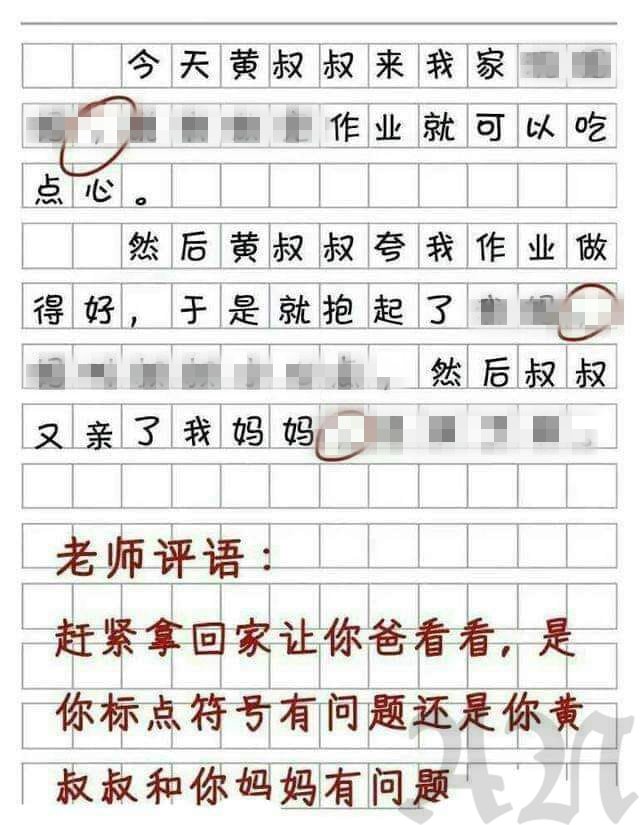 今天黄叔叔来我家
作业就可以吃
点心。
然后黄叔叔夸我作业做
得好，于是就抱起了
然后叔叔
又亲了我妈妈
老师评语：
赶紧拿回家让你爸看看，是
你标点符号有问题还是你黄
叔叔和你妈妈有问题
AN